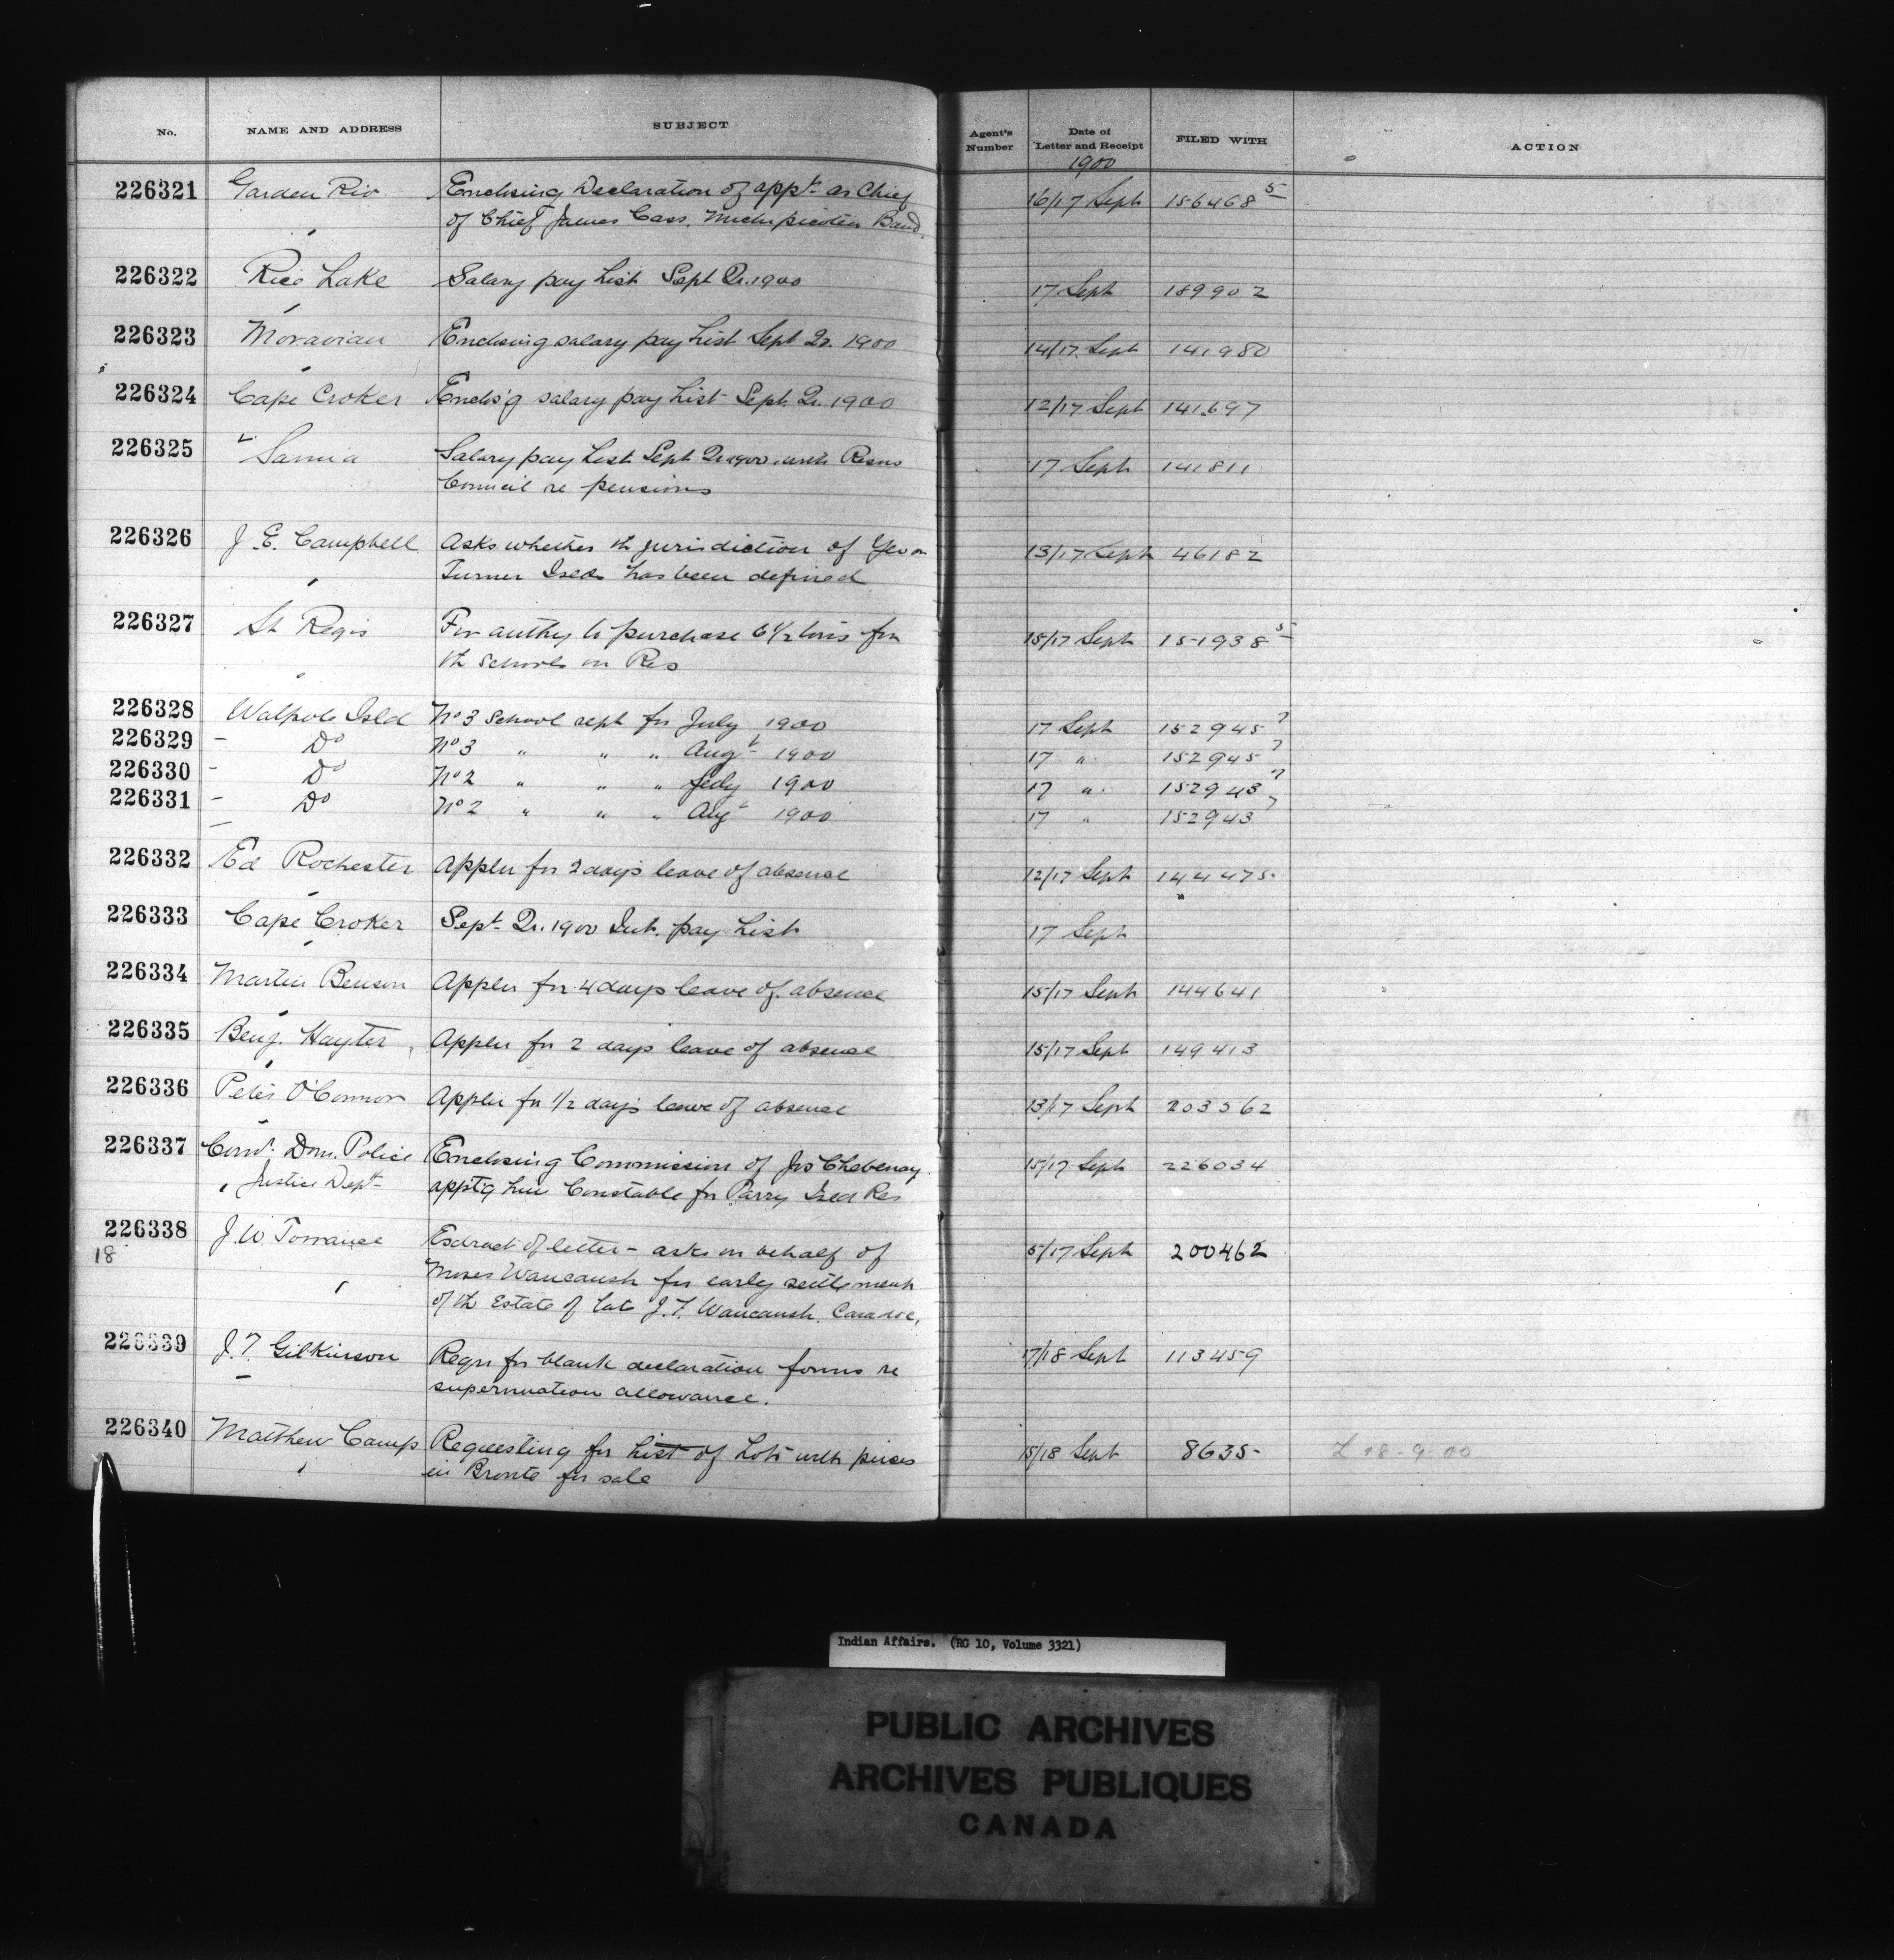 No. NAME AND ADDRESS SUBJECT Agent's Number Date of Letter and Receipt FILED WITH ACTION
1900
226321 Garden Riv Enclosing Declaration of appt. as Chief 16/17 Sept 156468 5
of Chief James Cass. Michipicoten Band.
226322 Rice Lake Salary pay List Sept Qr. 1900 17 Sept 189902
226323 Moravian Enclosing salary pay List Sept Qr. 1900 14/17 Sept 141980
226324 Cape Croker Enclos'g salary pay List Sept. Qr. 1900 12/17 Sept 141697
226325 Sarnia Salary pay List Sept Qr 1900 with Resns 17 Sept 141811
Council re pensions
226326 J. E. Campbell Asks whether th jurisdiction of Geo 13/17 Sept 46182
Turner Isld has been defined
226327 St Regis For authy to purchase 6 1/2 tons for 15/17 Sept 151938 5
th schools on Res
226328 Walpole Isld No 3 School rept for July 1900 17 Sept 152945 7
226329 - Do No 3 " " " Augt 1900 17 " 152945 7
226330 - Do No 2 " " " July 1900 17 " 152943 7
226331 - Do No 2 " " " Aug 1900 17 " 152943 7
226332 Ed Rochester Appln for 2 days leave of absence 12/17 Sept 144475
226333 Cape Croker Sept Qr. 1900 Int. pay List 17 Sept
226334 Martin Benson Appln for 4 days leave of absence 15/17 Sept 144641
226335 Benj. Hayter Appln for 2 days leave of absence 15/17 Sept 149413
226336 Peter O'Connor Appln for 1/2 days leave of absence 13/17 Sept 203562
226337 Comr. Dom. Police Enclosing Commission of Jos Chebenay 15/17 Sept 226034
Justice Dept apptg him Constable for Parry Isld Res
226338 J. W. Torrance Extract of letter - asks on behalf of 5/17 Sept 200462
18 Moses Waucaush for early settlement
of th Estate of late J. F. Waucaush, Caradoc,
226339 J. T. Gilkinson Reqn for blank declaration forms re 17/18 Sept 113459
supernuation allowance.
226340 Matthew Camp Requesting for List of Lots with prices 15/18 Sept 8635 L 18-9-00
in Bronte for sale
Indian Affairs. (RG 10, Volume 3321)
PUBLIC ARCHIVES
ARCHIVES PUBLIQUES
CANADA